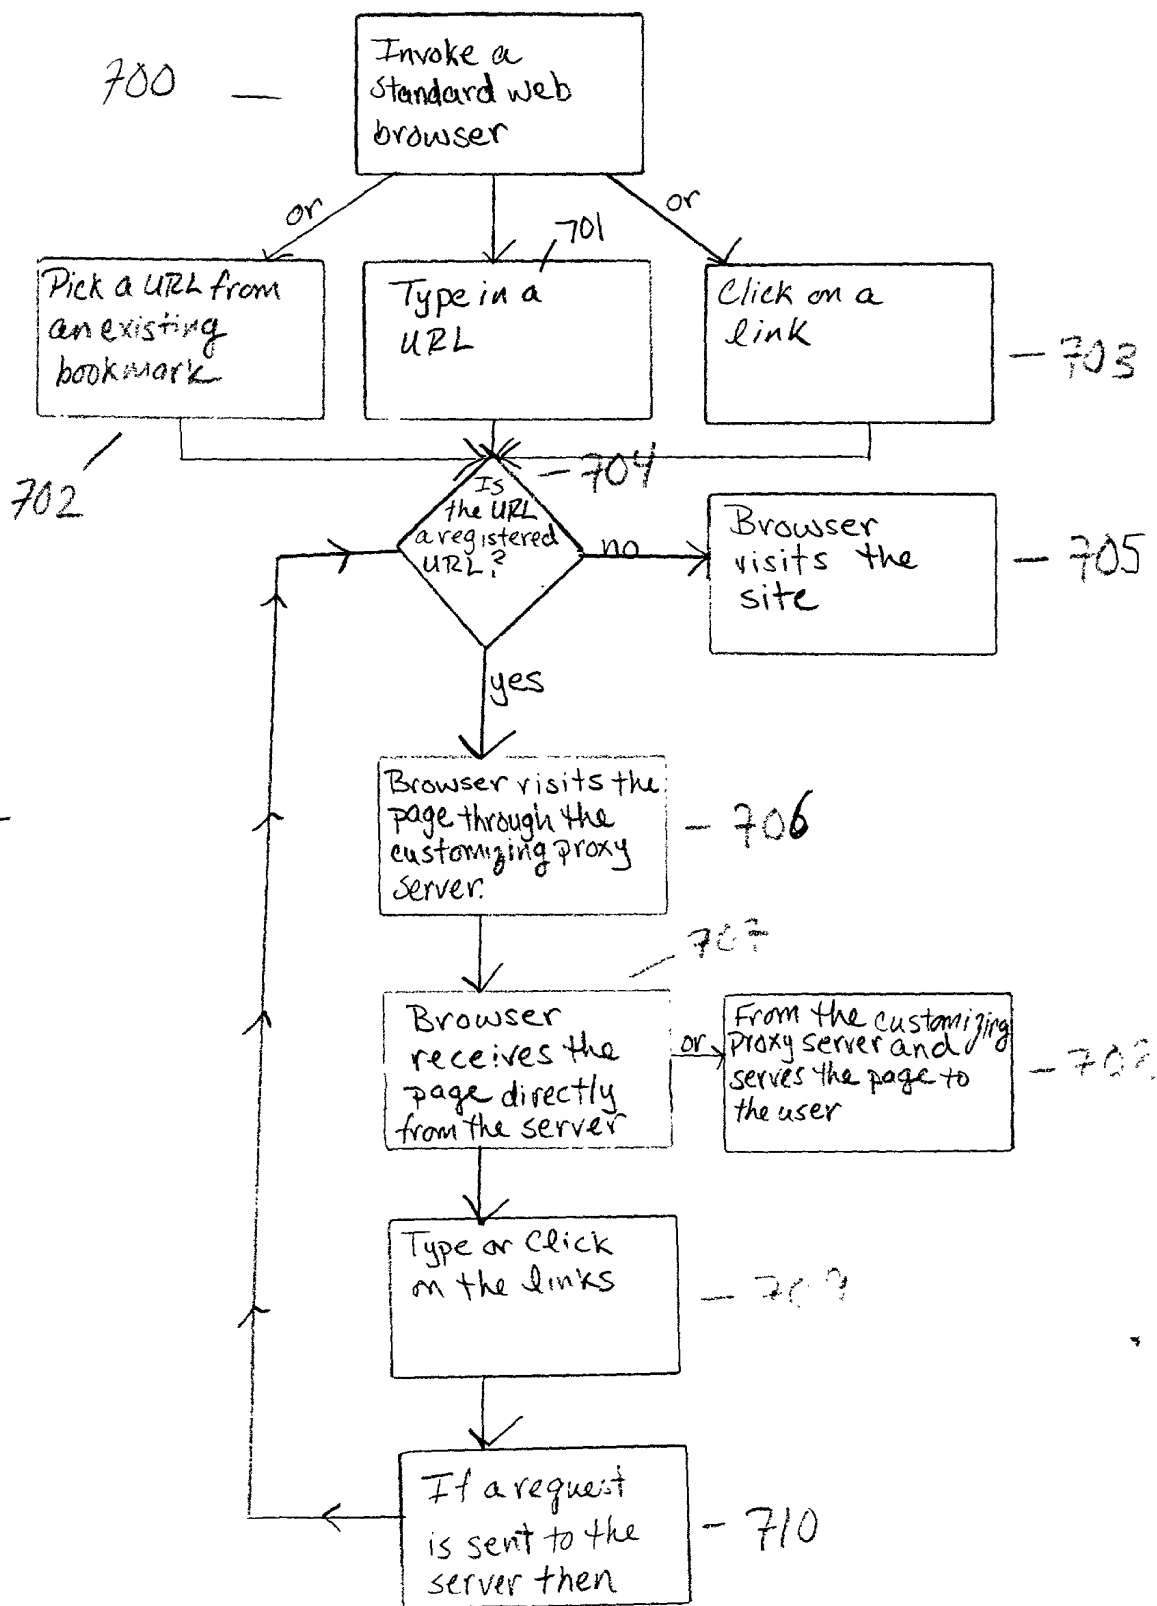 700
Invoke a
standard web
browser
or
or
701
Pick a URL from
an existing
bookmark
Type in a
URL
Click on a
link
703
702
704
Is
the URL
a registered
URL?
no
Browser
visits the
site
705
yes
Browser visits the
page through the
customizing proxy
server.
706
707
Browser
receives the
page directly
from the server
or
From the customizing
proxy server and
serves the page to
the user
708
Type or Click
on the links
709
If a request
is sent to the
server then
710